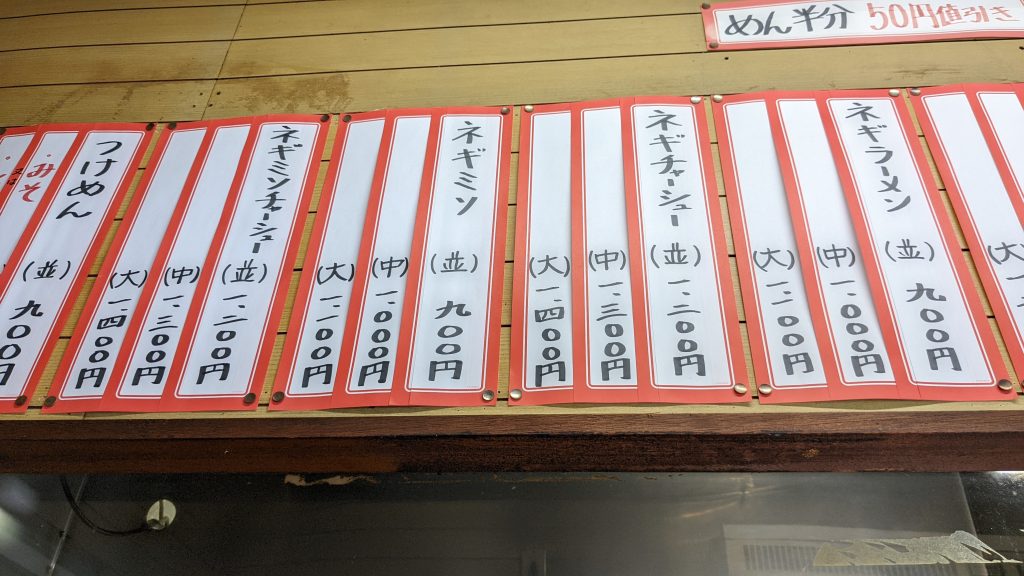 めん半分 50円値引き
ネギラーメン (並) 九〇〇円
(中) 一、〇〇〇円
(大) 一、一〇〇円
ネギチャーシュー (並) 一、二〇〇円
(中) 一、三〇〇円
(大) 一、四〇〇円
ネギミソ (並) 九〇〇円
(中) 一、〇〇〇円
(大) 一、一〇〇円
ネギミソチャーシュー (並) 一、二〇〇円
(中) 一、三〇〇円
(大) 一、四〇〇円
つけめん (並) 九〇〇円
・みそ